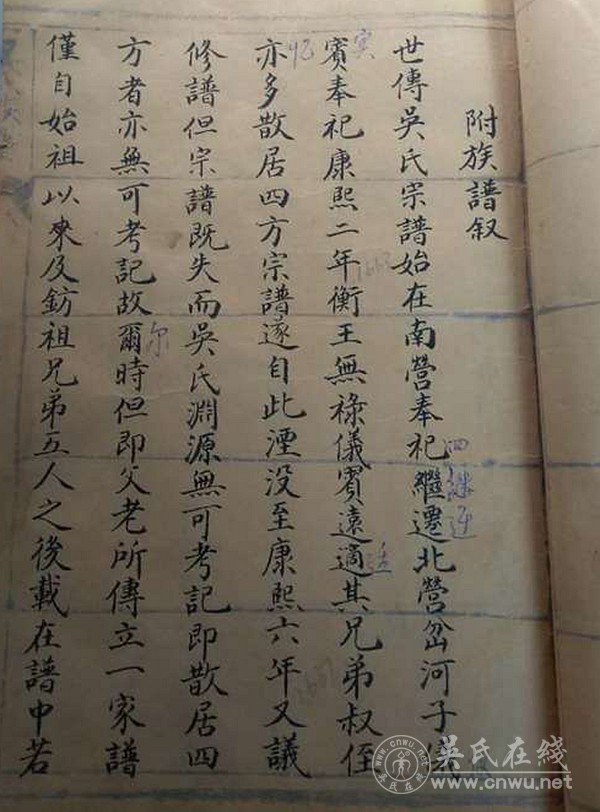 附族譜叙
世傳吳氏宗譜始在南營奉祀繼遷北營岔河子儀
賓奉祀康熙二年衡王無祿儀賓遠適其兄弟叔侄
亦多散居四方宗譜遂自此湮没至康熙六年又議
修譜但宗譜既失而吳氏淵源無可考記即散居四
方者亦無可考記故爾時但即父老所傳立一家譜
僅自始祖以來及鈁祖兄弟五人之後載在譜中若
宾
1663
1667
尔
吴氏在线
www.cnwu.net